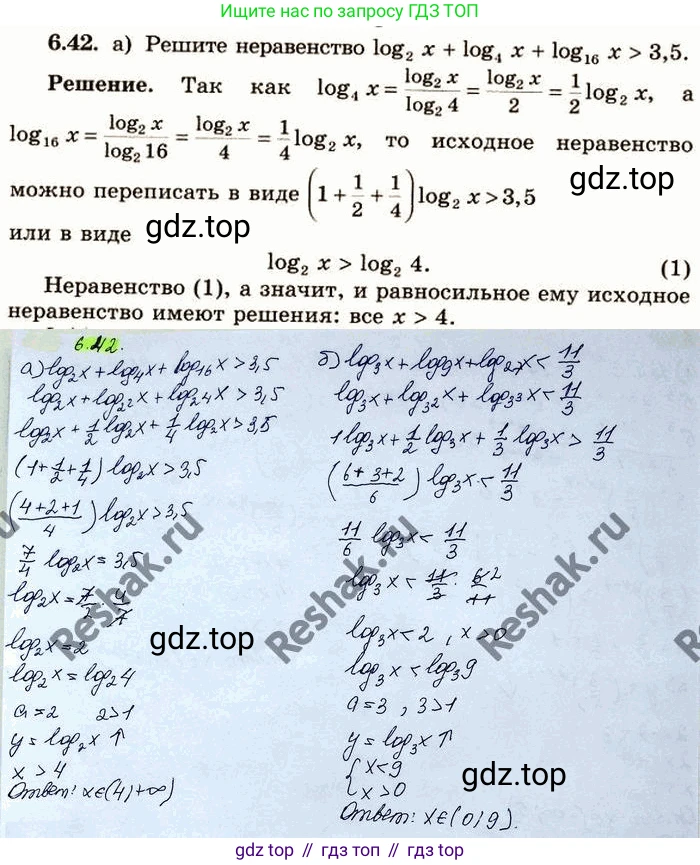 Ищите нас по запросу ГДЗ ТОП
6.42. а) Решите неравенство log₂ x + log₄ x + log₁₆ x > 3,5.
Решение. Так как log₄ x = log₂ x / log₂ 4 = log₂ x / 2 = 1/2 log₂ x, а
log₁₆ x = log₂ x / log₂ 16 = log₂ x / 4 = 1/4 log₂ x, то исходное неравенство
gdz.top
можно переписать в виде (1 + 1/2 + 1/4) log₂ x > 3,5
gdz.top
или в виде
log₂ x > log₂ 4. (1)
Неравенство (1), а значит, и равносильное ему исходное
неравенство имеют решения: все x > 4.
6.42.
а) log₂x + log₄x + log₁₆x > 3,5
log₂x + log₂²x + log₂4x > 3,5
log₂x + 1/2 log₂x + 1/4 log₂x > 3,5
(1 + 1/2 + 1/4) log₂x > 3,5
((4+2+1)/4) log₂x > 3,5
7/4 log₂x = 3,5
log₂x = 7/2 · 4/7
log₂x = 2
log₂x = log₂4
a = 2 2>1
y = log₂x ↑
x > 4
Ответ: x∈(4;+∞)
б) log₃x + log₉x + log₂₇x < 11/3
log₃x + log₃²x + log₃³x < 11/3
1log₃x + 1/2 log₃x + 1/3 log₃x > 11/3
((6+3+2)/6) log₃x < 11/3
11/6 log₃x < 11/3
log₃x < 11/3 · 6 2/11
log₃x < 2, x > 0
log₃x < log₃9
a = 3, 3>1
y = log₃x ↑
{ x < 9
x > 0
Ответ: x∈(0;9).
Reshak.ru
Reshak.ru
Reshak.ru
gdz.top
gdz.top
gdz.top
gdz.top // gdz.top // gdz.top // gdz.top // gdz.top